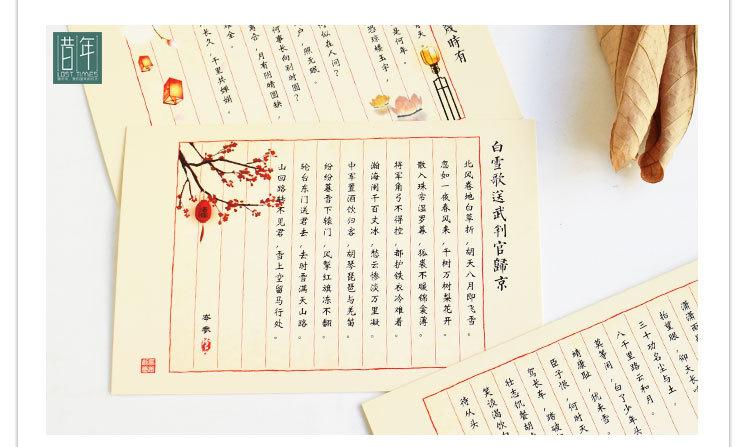 昔年
LOST TIMES
幾時有
是何年
恐琼楼玉宇,
何似在人间?
户,照无眠。
何事长向别时圆?
离合,月有阴晴圆缺,
难全。
长久,千里共婵娟。
白雪歌送武判官歸京
北风卷地白草折,胡天八月即飞雪。
忽如一夜春风来,千树万树梨花开。
散入珠帘湿罗幕,狐裘不暖锦衾薄。
将军角弓不得控,都护铁衣冷难着。
瀚海阑干百丈冰,愁云惨淡万里凝。
中军置酒饮归客,胡琴琵琶与羌笛。
纷纷暮雪下辕门,风掣红旗冻不翻。
轮台东门送君去,去时雪满天山路。
山回路转不见君,雪上空留马行处。
岑参
潇潇雨
抬望眼,仰天长
三十功名尘与土,
八千里路云和月。
莫等闲,白了少年头
靖康耻,犹未雪。
臣子恨,何时灭
驾长车,踏破
壮志饥餐胡
笑谈渴饮
待从头